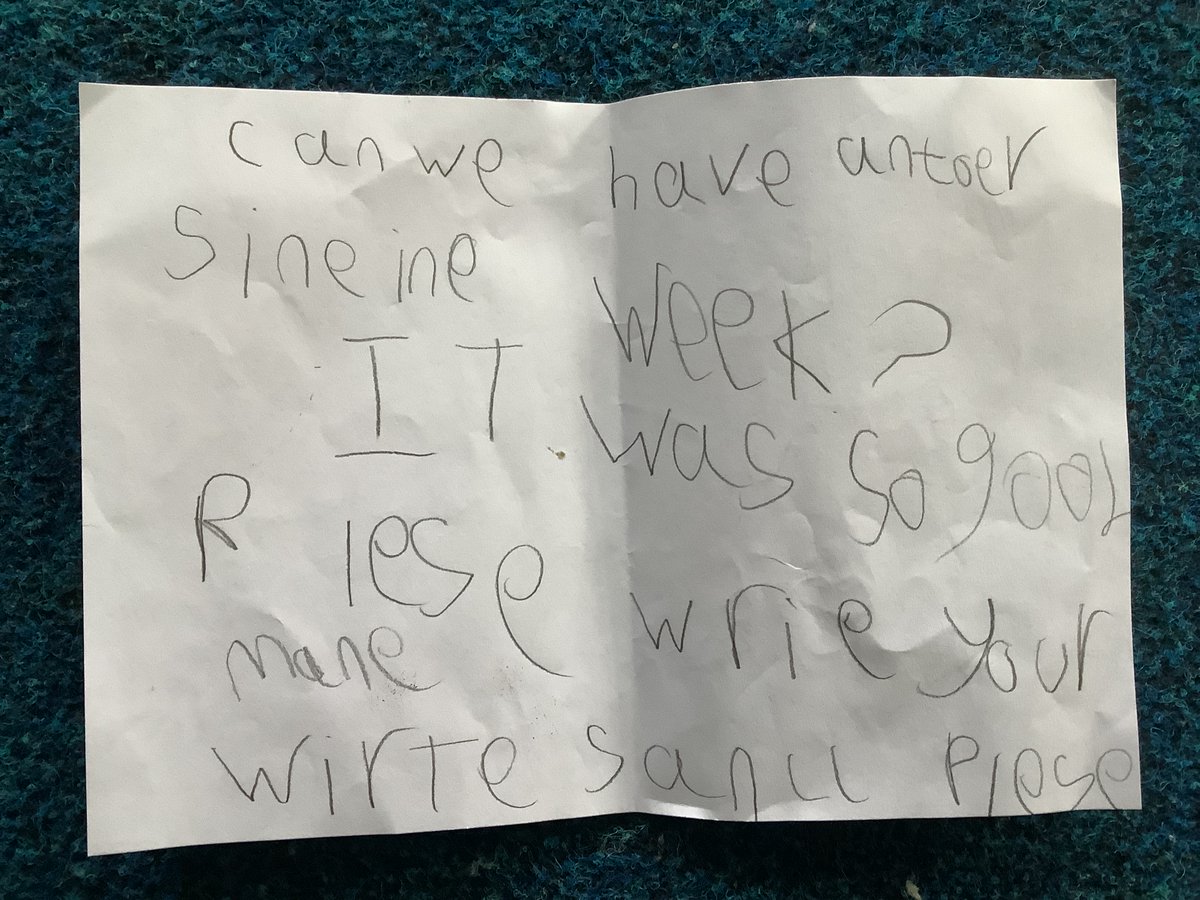 can we have antoer
Sineine week?
IT was so good
Plese wrie your
mane
wirte sanu Plese